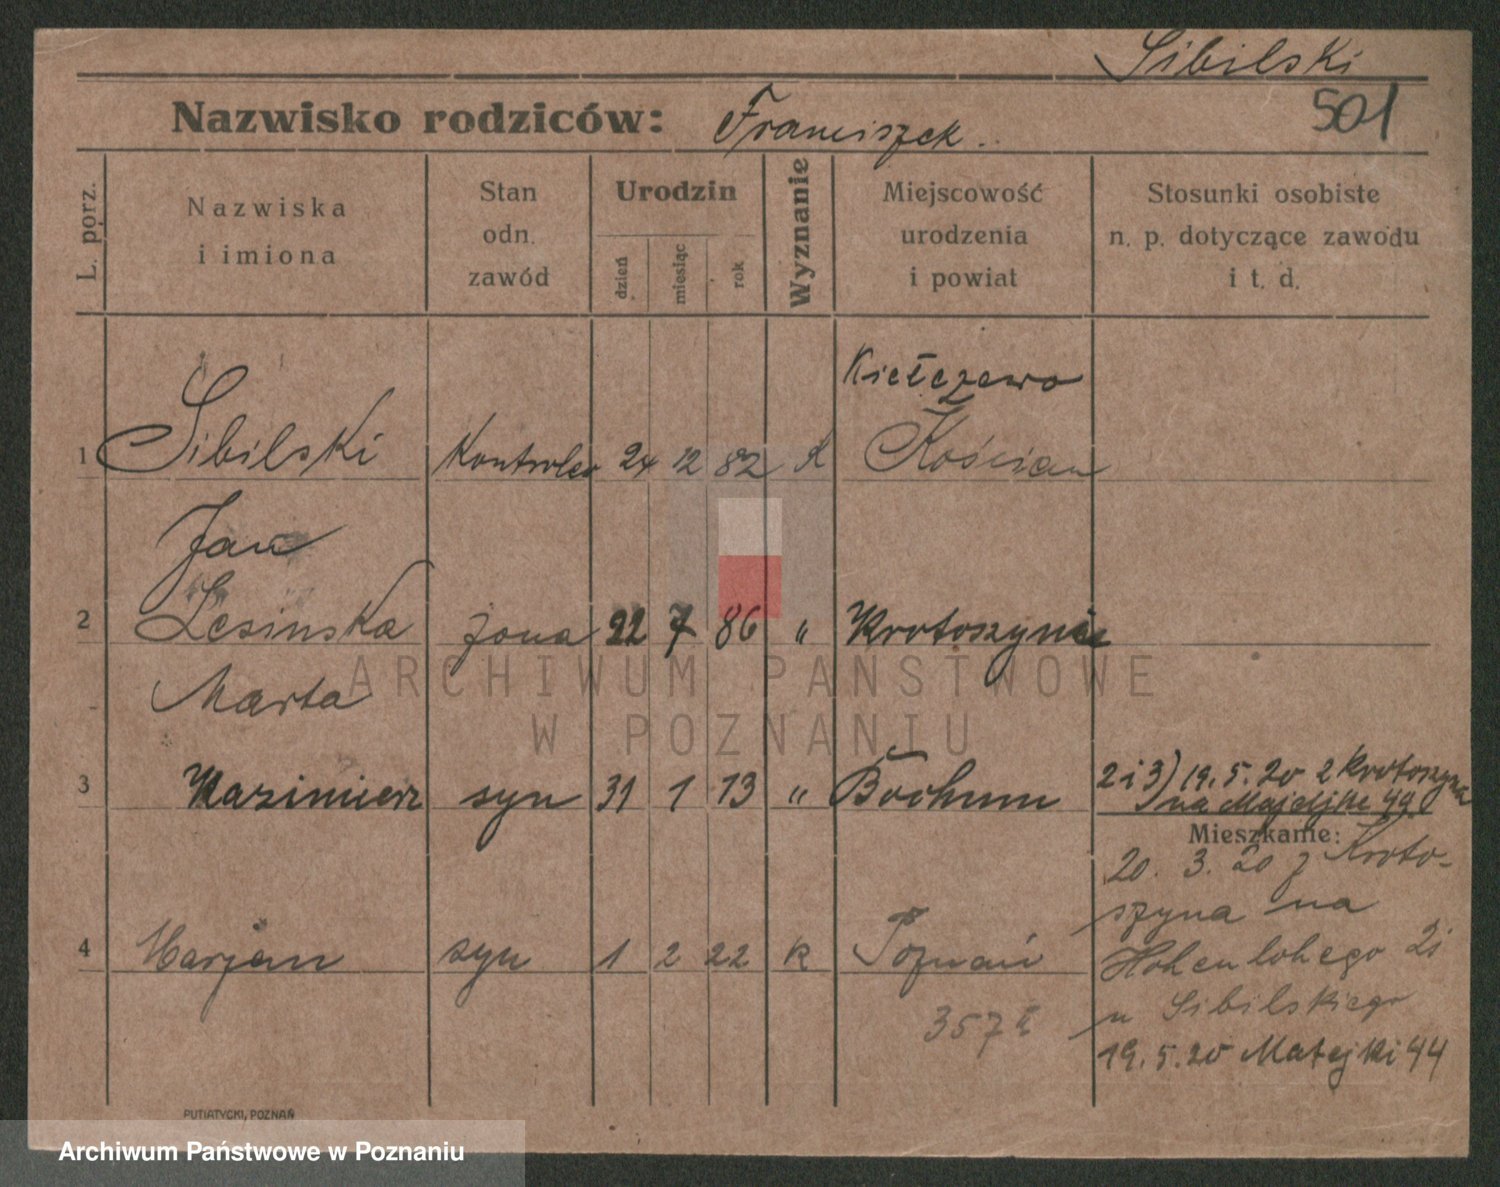 Sibilski
501
Nazwisko rodziców: Franciszek..
L. porz.
Nazwiska i imiona
Stan odn. zawód
Urodzin
dzień
miesiąc
rok
Wyznanie
Miejscowość urodzenia i powiat
Stosunki osobiste n. p. dotyczące zawodu i t. d.
Kiełczewo
1 Sibilski Kontroler 24 12 82 K Kościan
Jan
2 Lesinska żona 22 7 86 " Krotoszynie
Marta
3 Kazimierz syn 31 1 13 " Bochum
2 i 3) 19.5.20 z Krotoszyna
na Matejki 44
Mieszkanie:
20. 3. 20 z Kroto-
szyna na
4 Marjan syn 1 2 22 K Poznań
Hohenlohego 21
u Sibilskiego
357
19.5.20 Matejki 44
PUTIATYCKI, POZNAŃ
ARCHIWUM PAŃSTWOWE
W POZNANIU
Archiwum Państwowe w Poznaniu